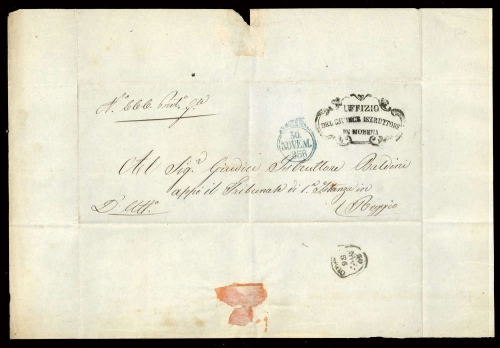 Nº 666
UFFIZIO
DEL GIUDICE ISTRUTTORE
IN MODENA
30
NOVEM.
1856
Al Sig.r Giudice Istruttore Baldini
appo il Tribunale di 1ª Istanza in
Reggio
D'Uffº